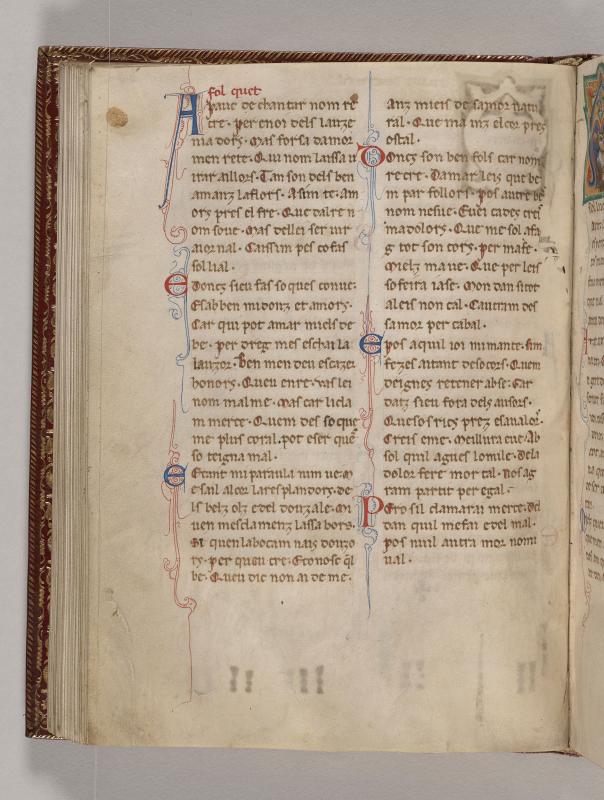 fol quet
Apauc de chantar nom re
cre. per enor dels lauze
nia dors. Mas forsa damor
men rete. Qui nom laissa u
irar aillors. Tan son dels ben
amanz la flors. Asim te. Am
ors pres el fre. Que dal re n
om soue. Mas dellei ser uir
aior nal. Caissim pes cofas
sol lial.
E doncs sieu fas so ques conue.
E sab ben midonz et amors.
Car qui pot amar miels de
be. per dreg mes eschai la
lauzor. Ben men deu
honors. Queu enre
nom mal me. Mas car li cla
m merce. Quem des so que
me plus coral. pot eser que
so teigna mal.
E tant mi paraula num ue. en
e sail al cor la resplandors. de
ls belz olz el dolzzale.
uen mescla menz la ssa bors.
Si quen la bocam nais douzo
rs. per queu cre. Econose ql
be. Queu dic non ai de me.
Anz mieis de samor natu
ral. Que ma inz el cor pres
ostal.
Doncs son ben fols car nom
recre. Damar leis que be
m par follors. pos autre be
nom nesiue. E uei cades cres
ma dolors. Que me sol afa
g tot son cors. per ma fe.
Mielz ma ue. Que per leis
sofeira iase. Mon dan sitot
a leis non cal. Caitram des
samor per cabal.
E pos aquil ioi mi mante.
fezes aitant de socors. Quem
deignes retener ab se. Car
datz sieu fora dels
Que sos rics prez
Creis eme. Meillura
sol quil agues lo mile. de la
dolor fere mor tal. Nos ag
ram partir per egal.
Pero sil clamarai merce. del
dan quil mefai e del mal.
pos nuil autra mor nomi
ual.